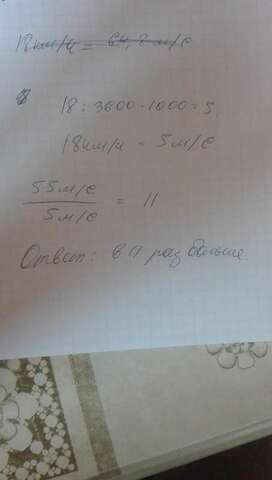 18км/ч = 64,8 м/с
18 : 3600 · 1000 = 5
18км/ч = 5м/с
55м/с
5м/с
= 11
Ответ: в 11 раз больше